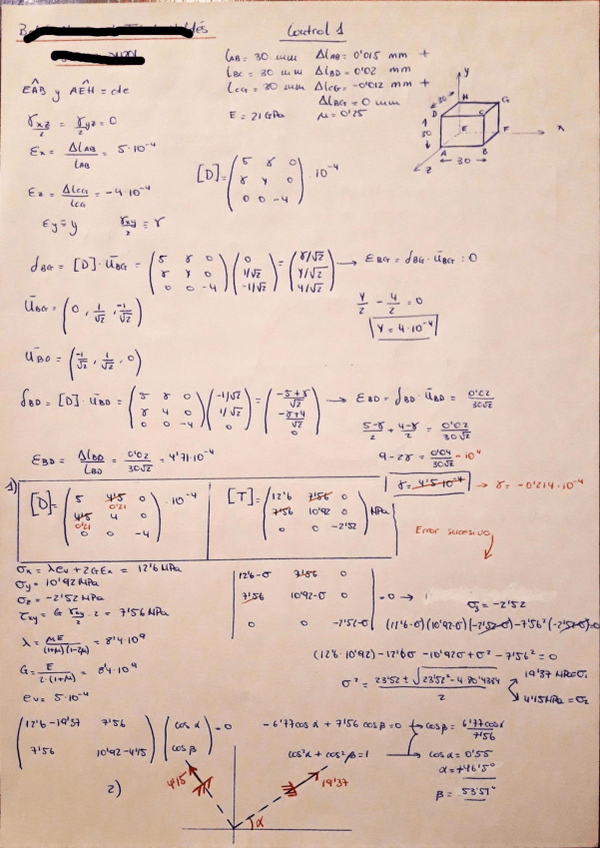 Control 1
l_AB = 30 mm Δl_AB = 0'015 mm +
l_BC = 30 mm Δl_BD = 0'02 mm
l_CG = 30 mm Δl_CG = -0'012 mm +
Δl_BG = 0 mm
E = 21 GPa μ = 0'25
EÂB y AÊH = cte
γxz/2 = γyz/2 = 0
Ex = Δl_AB/l_AB = 5·10⁻⁴
Ez = Δl_CG/l_CG = -4·10⁻⁴
Ey ≡ y γxy/2 ≡ γ
[D] = (5 γ 0
γ y 0
0 0 -4) ·10⁻⁴
y
H
G
D
C
30
30
E
F
x
A
B
z
30
δ_BG = [D]·ū_BG = (5 γ 0 / γ y 0 / 0 0 -4) (0 / 1/√2 / -1/√2) = (γ/√2 / y/√2 / 4/√2) → E_BG = δ_BG·ū_BG = 0
ū_BG = (0, 1/√2, -1/√2)
y/2 - 4/2 = 0
y = 4·10⁻⁴
ū_BD = (-1/√2, 1/√2, 0)
δ_BD = [D]·ū_BD = (5 γ 0 / γ 4 0 / 0 0 -4) (-1/√2 / 1/√2 / 0) = (-5+γ/√2 / -γ+4/√2 / 0) → E_BD = δ_BD·ū_BD = 0'02/30√2
5-γ/2 + 4-γ/2 = 0'02/30√2
E_BD = Δl_BD/l_BD = 0'02/30√2 = 4'71·10⁻⁴
9-2γ = 0'04/30√2 ·10⁴
γ = 4'5·10⁻⁴ → γ = -0'214·10⁻⁴
1) [D] = (5 4'5 0
4'5 4 0
0'21
0'21
0 0 -4) ·10⁻⁴
[T] = (12'6 7'56 0
7'56 10'92 0
0 0 -2'52) MPa
Error sucesivo
σx = λev + 2GEx = 12'6 MPa
σy = 10'92 MPa
σz = -2'52 MPa
τxy = G γxy/2 ·2 = 7'56 MPa
λ = μE/(1+μ)(1-2μ) = 8'4·10⁹
G = E/2·(1+μ) = 8'4·10⁹
ev = 5·10⁻⁴
|12'6-σ 7'56 0
7'56 10'92-σ 0
0 0 -2'52-σ| = 0 →
σ₃ = -2'52
(12'6-σ)(10'92-σ)(-2'52-σ)-7'56²(-2'52-σ)=0
(12'6·10'92) - 12'6σ - 10'92σ + σ² - 7'56² = 0
19'37 MPa = σ₁
4'15 MPa = σ₂
(12'6-19'37 7'56
7'56 10'92-4'15) (cos α
cos β) = 0
-6'77cos α + 7'56 cos β = 0 → cos β = 6'77cos α/7'56
cos²α + cos²β = 1
cos α = 0'55
α = +46'5°
β = 53'51°
2)
4'15
19'37
α